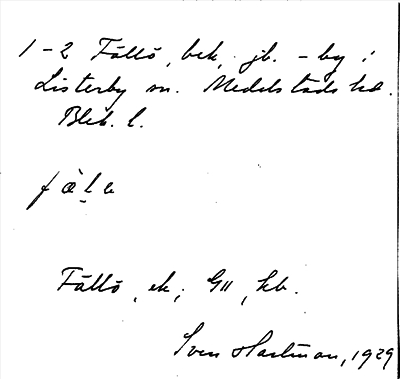 1-2 Fällö, bek. jb. - by i
Listerby sn. Medelstads hd.
Blek. l.
fæ̀ḷa
Fällö, ek; GII, kb.
Sven Hartman, 1929